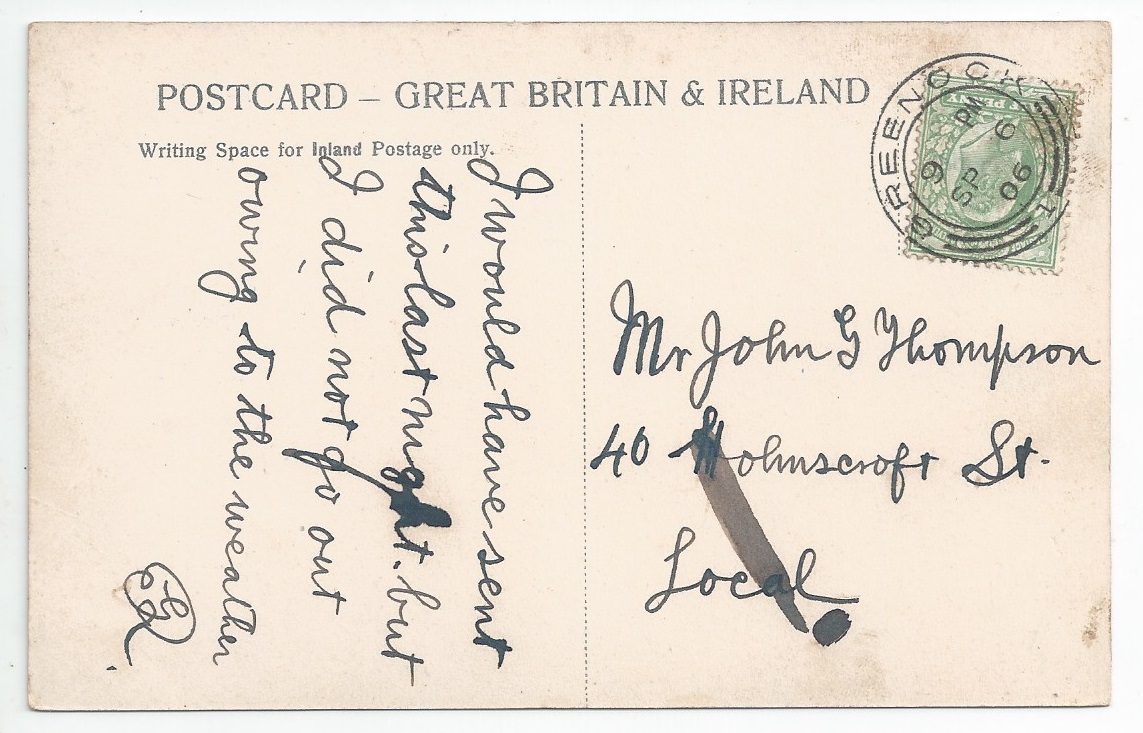 POSTCARD – GREAT BRITAIN & IRELAND
Writing Space for Inland Postage only.
I would have sent
this last night. but
I did not go out
owing to the weather
GREENOCK
9 PM
SP 6
06
1
PENNY
Mr John G Thompson
40 Holmscroft St.
Local